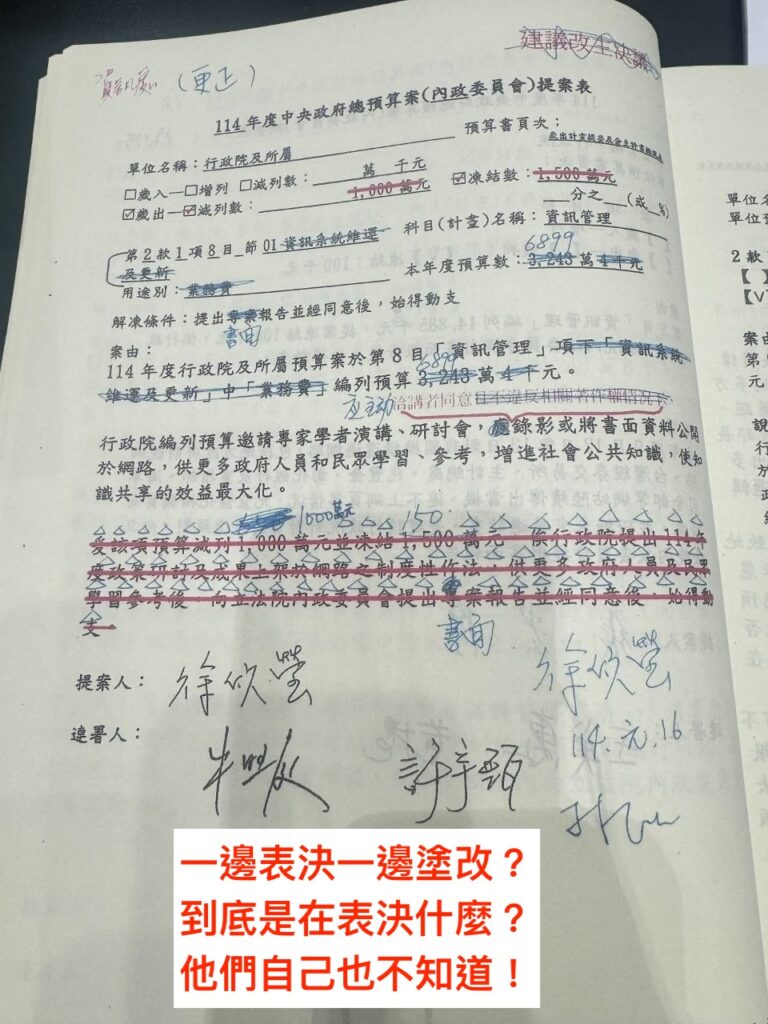 建議改主決議
資訊處
（更正）
114年度中央政府總預算案（內政委員會）提案表
預算書頁次：歲出計畫提要及分支計畫概況表
單位名稱：行政院及所屬
□歲入—□增列 □減列數： 萬 千元
☑歲出—☑減列數： 1,000 萬元 ☑凍結數： 1,500 萬元
分之 （或 %）
第2款1項8目 節01資訊系統維運及更新
科目（計畫）名稱：資訊管理
6899
用途別：業務費
本年度預算數：3,243萬4千元
解凍條件：提出專案報告並經同意後，始得動支
書面
案由：
6899
114年度行政院及所屬預算案於第8目「資訊管理」項下「資訊系統
維運及更新」中「業務費」編列預算3,243萬4千元。
應主動洽講者同意且不違反相關著作權情況下
行政院編列預算邀請專家學者演講、研討會，應錄影或將書面資料公開
於網路，供更多政府人員和民眾學習、參考，增進社會公共知識，使知
識共享的效益最大化。
1000萬元 150
爰該項預算減列1,000萬元並凍結1,500萬元，俟行政院提出114年
度政策研討及成果上架於網路之制度性作法，供更多政府人員及民眾
學習參考後，向立法院內政委員會提出專案報告並經同意後，始得動
支。
書面
提案人：徐欣瑩 徐欣瑩
連署人：牛煦庭 許宇甄 114.元.16
一邊表決一邊塗改？
到底是在表決什麼？
他們自己也不知道！